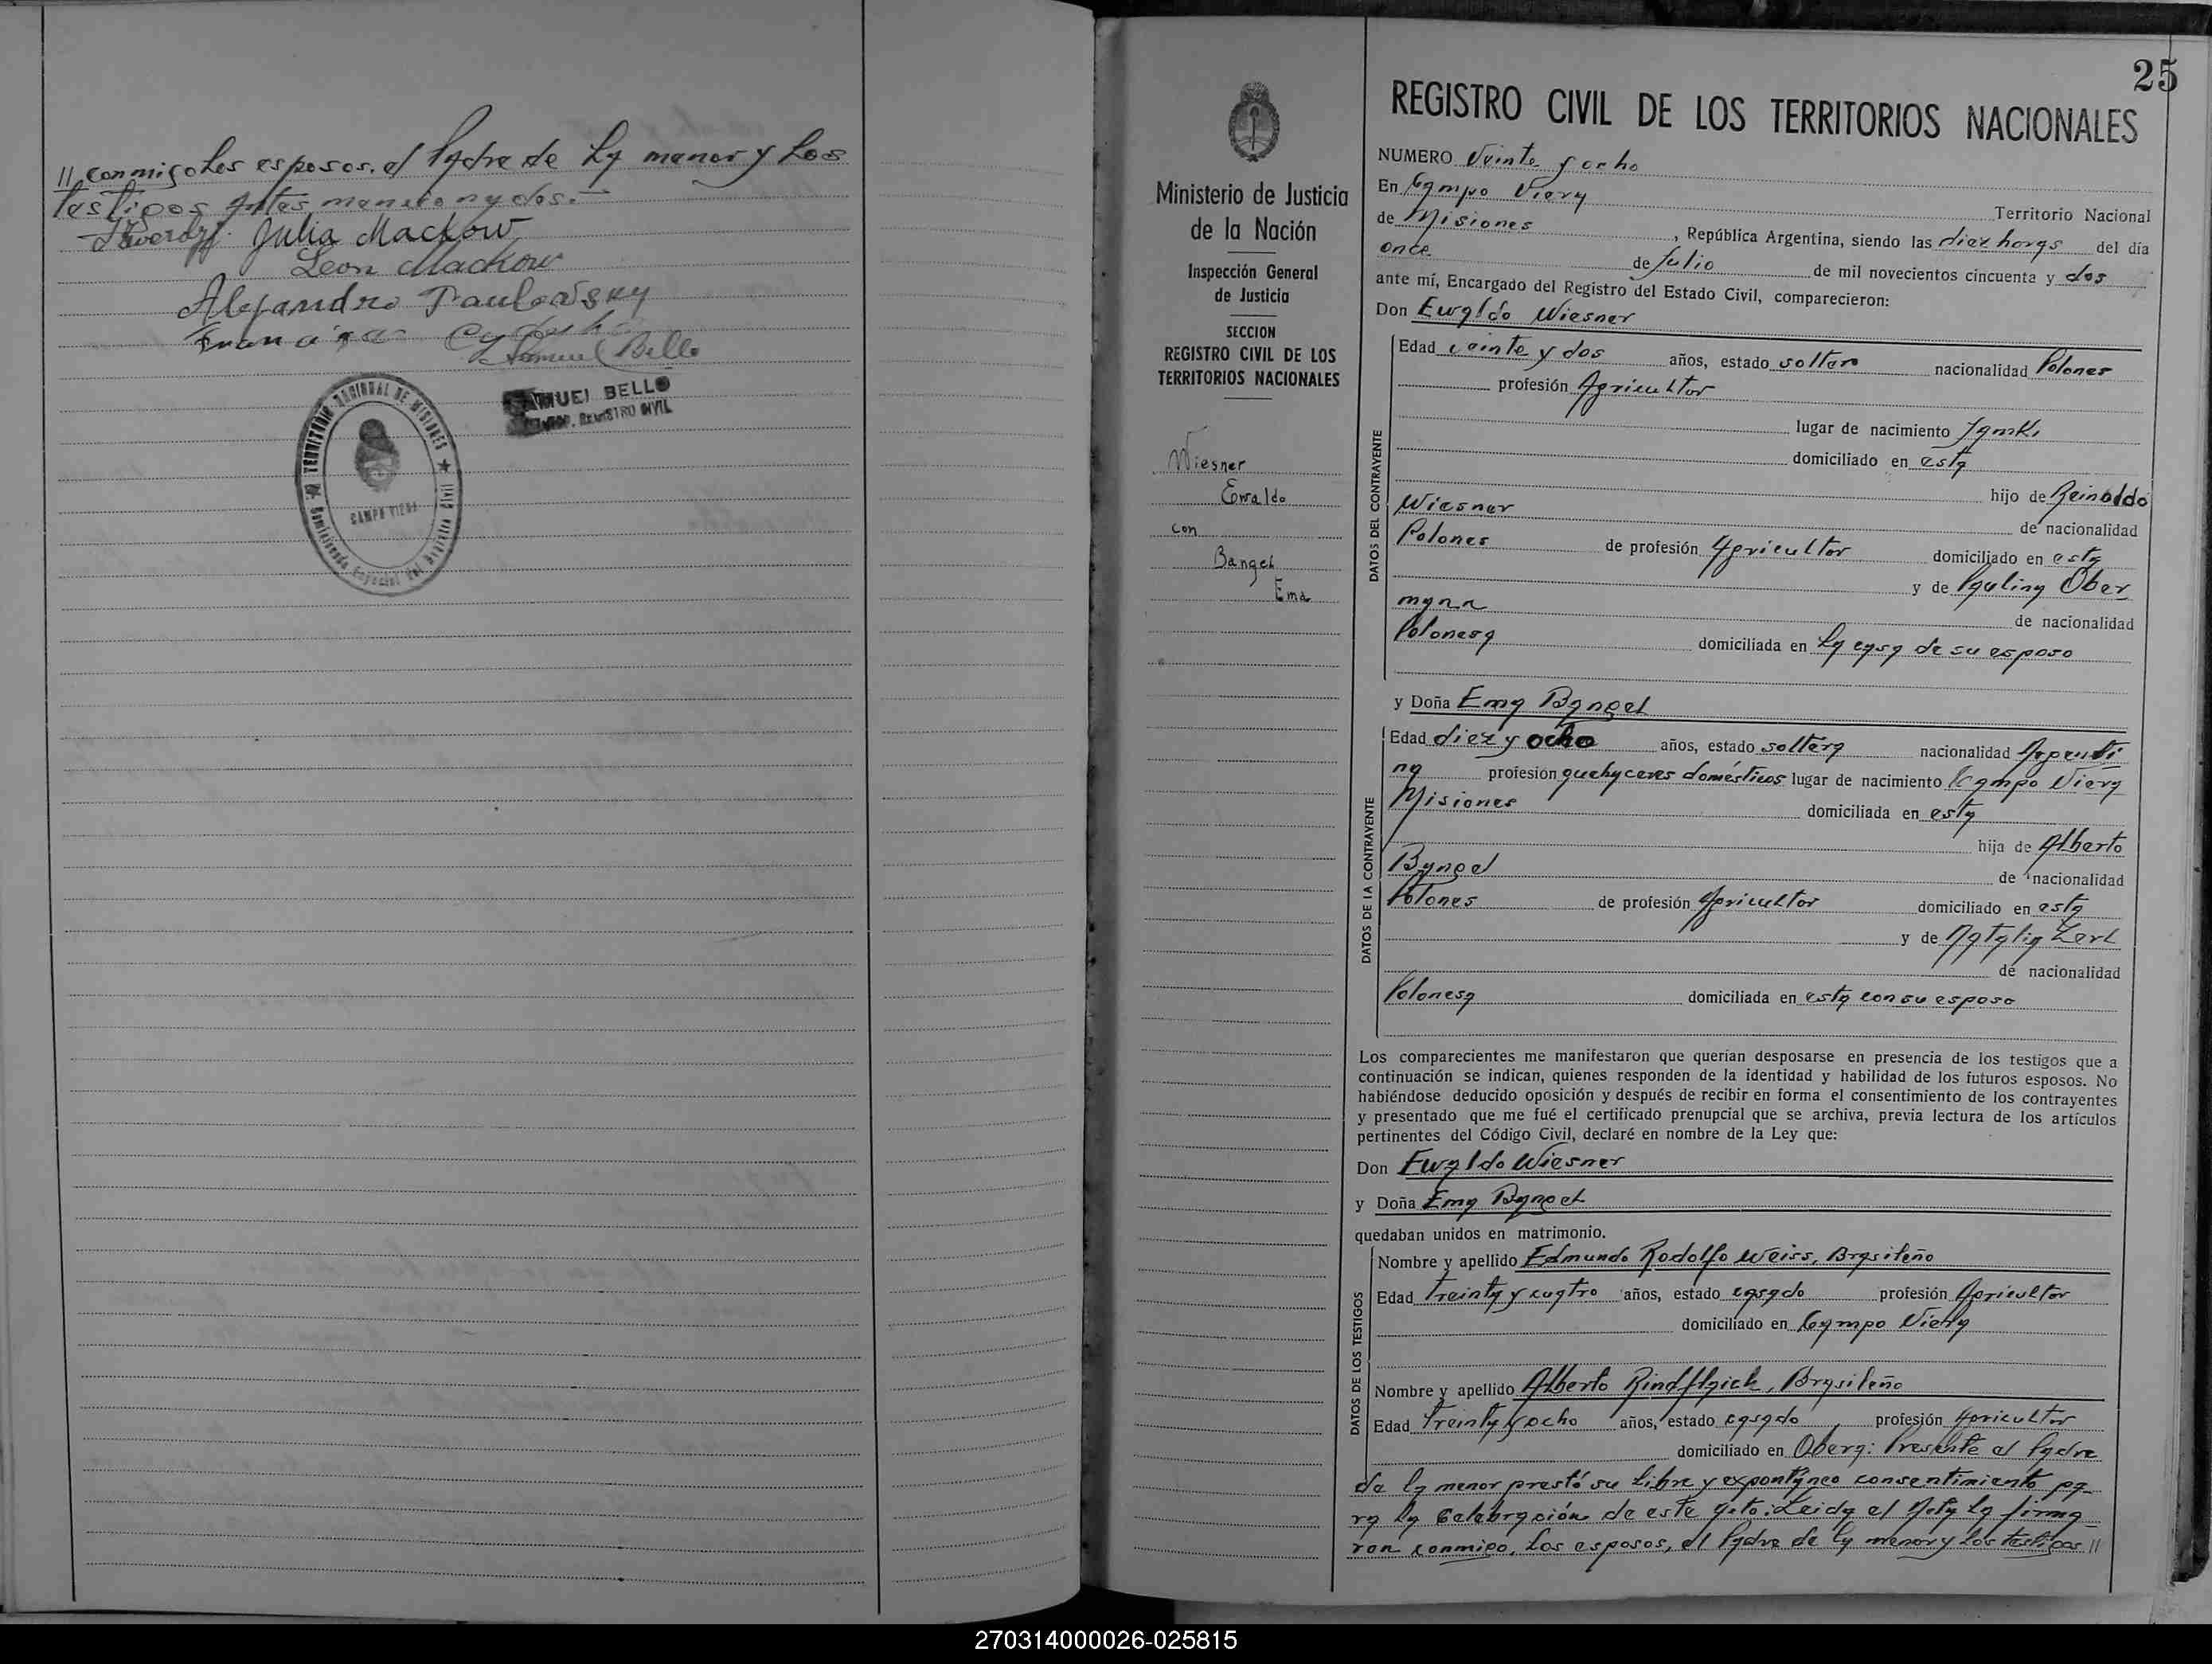 // conmigo los esposos, el Padre de la menor y los
testigos antes mencionados.—
Julia Mackow
Leon Mackow
Alejandro Paulowsky
Samuel Bello
SAMUEL BELLO
REGISTRO CIVIL
TERRITORIO NACIONAL DE MISIONES
CAMPO VIERA
25
REGISTRO CIVIL DE LOS TERRITORIOS NACIONALES
Ministerio de Justicia
de la Nación
Inspección General
de Justicia
SECCION
REGISTRO CIVIL DE LOS
TERRITORIOS NACIONALES
Wiesner
Ewaldo
con
Bangel
Ema
NUMERO Veinte y ocho
En Campo Viera Territorio Nacional
de Misiones, República Argentina, siendo las diez horas del día
once de Julio de mil novecientos cincuenta y dos
ante mí, Encargado del Registro del Estado Civil, comparecieron:
Don Ewaldo Wiesner
DATOS DEL CONTRAYENTE
Edad veinte y dos años, estado soltero nacionalidad Polones
profesión Agricultor
lugar de nacimiento
domiciliado en esta
hijo de Reinoldo
Wiesner de nacionalidad
Polones de profesión Agricultor domiciliado en esta
y de Paulina Ober
mann de nacionalidad
Polonesa domiciliada en la casa de su esposo
y Doña Ema Bangel
DATOS DE LA CONTRAYENTE
Edad diez y ocho años, estado soltera nacionalidad Argenti
na profesión quehaceres domésticos lugar de nacimiento Campo Viera
Misiones domiciliada en esta
hija de Alberto
Bangel de nacionalidad
Polones de profesión Agricultor domiciliado en esta
y de Natalia Zerl
de nacionalidad
Polonesa domiciliada en esta con su esposo
Los comparecientes me manifestaron que querían desposarse en presencia de los testigos que a
continuación se indican, quienes responden de la identidad y habilidad de los futuros esposos. No
habiéndose deducido oposición y después de recibir en forma el consentimiento de los contrayentes
y presentado que me fué el certificado prenupcial que se archiva, previa lectura de los artículos
pertinentes del Código Civil, declaré en nombre de la Ley que:
Don Ewaldo Wiesner
y Doña Ema Bangel
quedaban unidos en matrimonio.
DATOS DE LOS TESTIGOS
Nombre y apellido Edmundo Rodolfo Weiss, Brasileño
Edad treinta y cuatro años, estado casado profesión Agricultor
domiciliado en Campo Viera
Nombre y apellido Alberto Rindflaich, Brasileño
Edad treinta y ocho años, estado casado profesión Agricultor
domiciliado en Obera: Presente el Padre
de la menor prestó su libre y expontáneo consentimiento pa-
ra la Celebración de este acto. Leida el Acta la firma-
ron conmigo, los esposos, el Padre de la menor y los testigos //
270314000026-025815